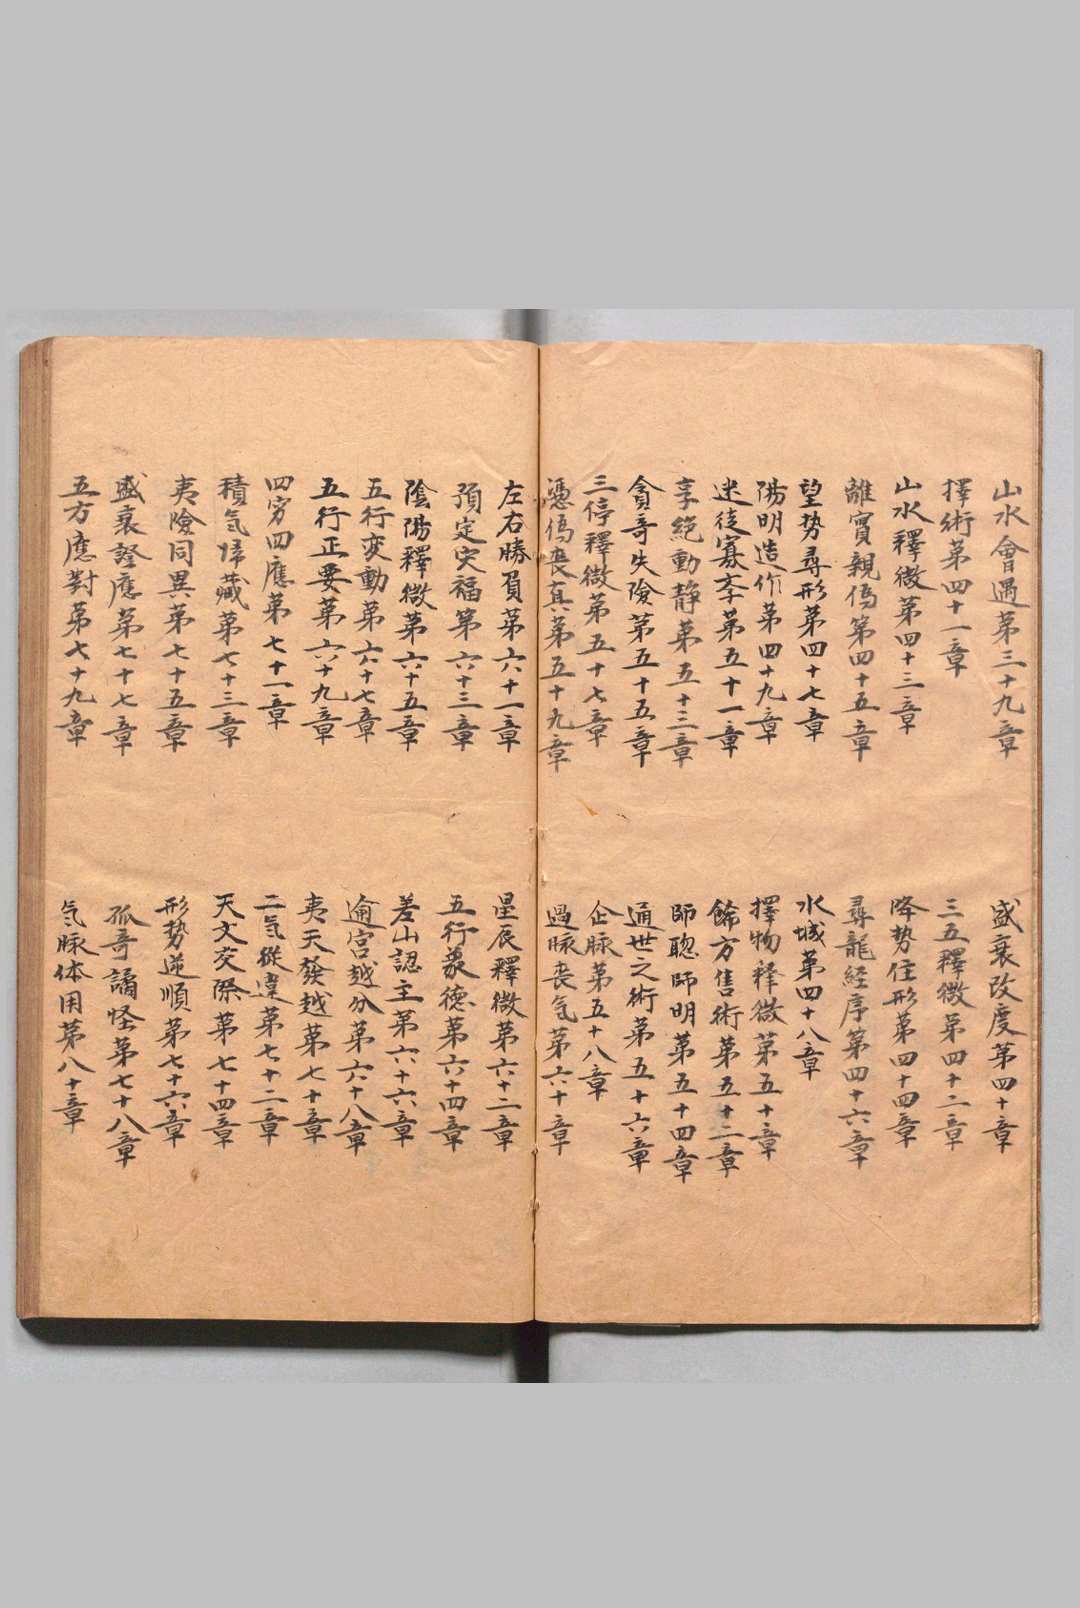 山水會遇第三十九章
盛衰改度第四十章
擇術第四十一章
三五釋微第四十二章
山水釋微第四十三章
降势住形第四十四章
離實親偽第四十五章
尋龍経序第四十六章
望势尋形第四十七章
水城第四十八章
陽明造作第四十九章
擇物释微第五十章
迷徒寡李第五十一章
餙方售術第五十二章
享絶動静第五十三章
師聦師明第五十四章
貪奇失險第五十五章
通世之術第五十六章
三停釋微第五十七章
企脉第五十八章
憑偽喪真第五十九章
過脉喪気第六十章
左右勝負第六十一章
星辰釋微第六十二章
預定灾福第六十三章
五行象徳第六十四章
陰陽釋微第六十五章
差山認主第六十六章
五行变動第六十七章
逾宫越分第六十八章
五行正要第六十九章
夷天發越第七十章
四穷四應第七十一章
二気從違第七十二章
積気帰藏第七十三章
天文交際第七十四章
夷險同異第七十五章
形势逆順第七十六章
盛衰證應第七十七章
孤奇譎怪第七十八章
五方應對第七十九章
気脉体用第八十章